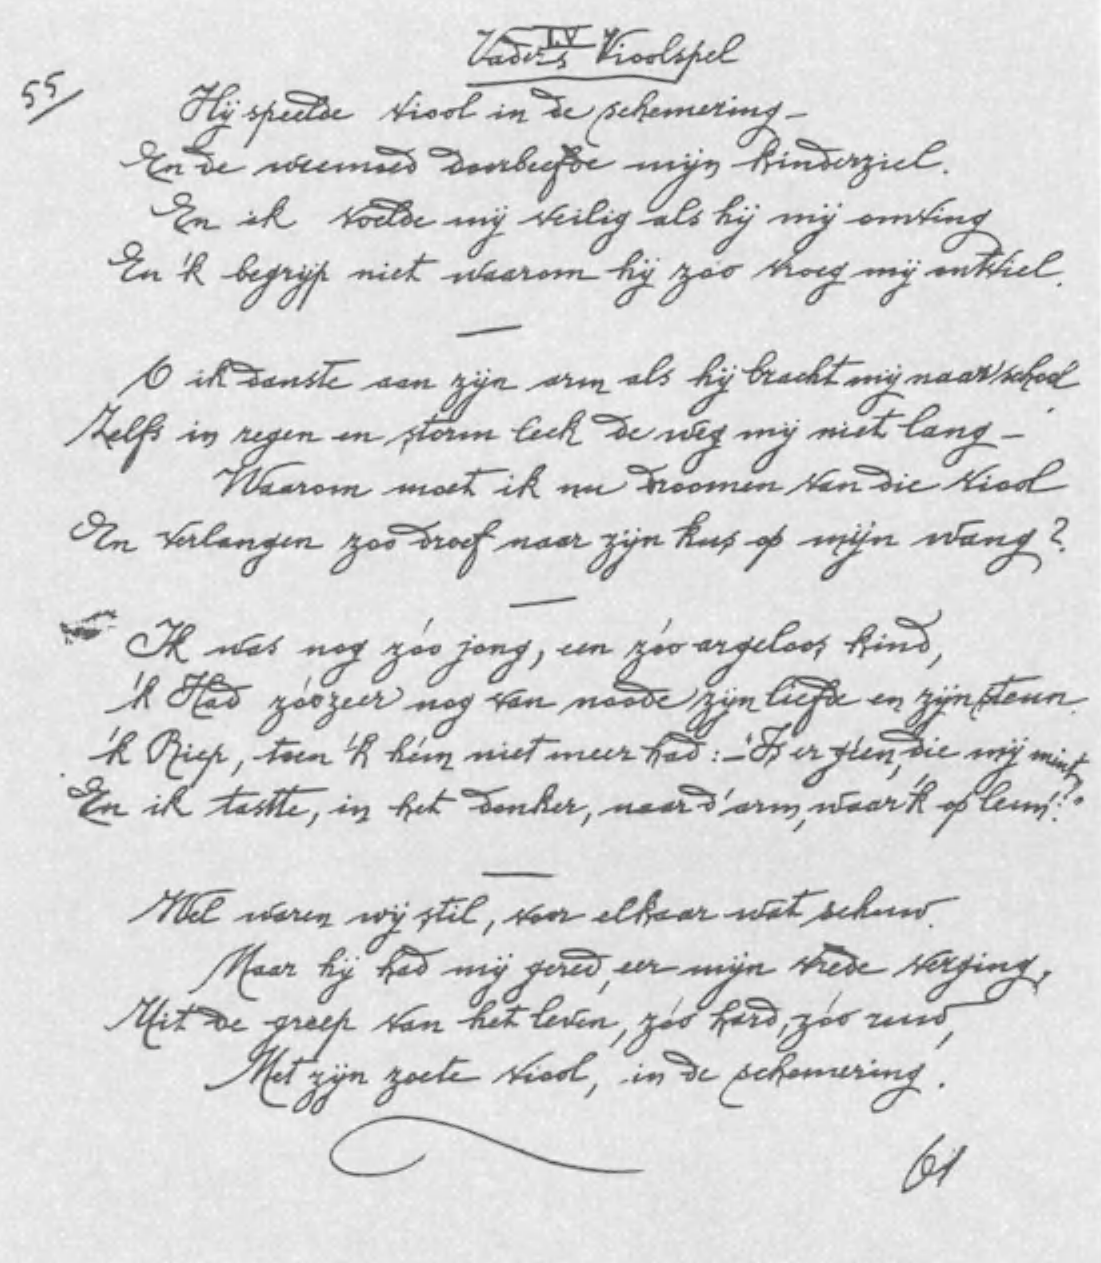 LV
Vaders Vioolspel
55
Hij speelde viool in de schemering –
En de weemoed doorbeefde mijn kinderziel.
En ik voelde mij veilig als hij mij omving
En 'k begrijp niet waarom hij zoo vroeg mij ontviel.
O ik danste aan zijn arm als hij bracht mij naar school
Zelfs in regen en storm leek de weg mij niet lang –
Waarom moet ik nu droomen van die viool
En verlangen zoo droef naar zijn kus op mijn wang?
Ik was nog zóo jong, een zóo argeloos kind,
'k Had zóozeer nog van noode zijn liefde en zijn steun.
'k Riep, toen 'k hém niet meer had: – Is er géen, die mij mint,
En ik tastte, in het donker, naar d'arm, waar 'k op leun'?
Wel waren wij stil, voor elkaar wat schuw.
Maar hij had mij gered, eer mijn vrede verging,
Uit de greep van het leven, zóo hard, zóo ruw,
Met zijn zoete viool, in de schemering.
61